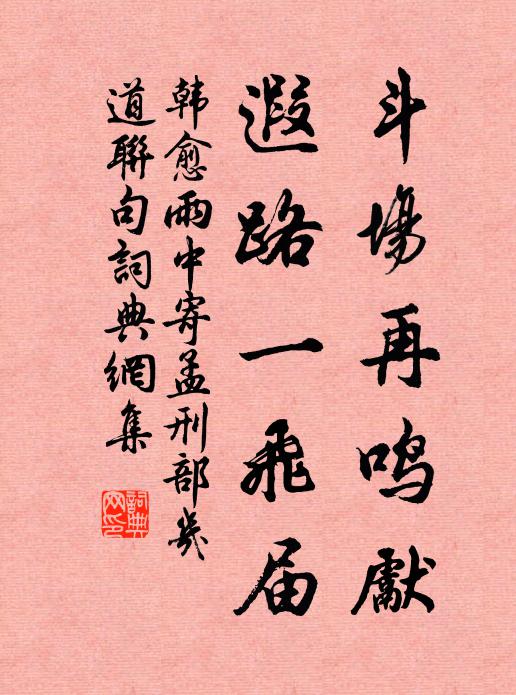 斗場再鳴獻
遐路一飛届
韓愈雨中寄孟刑部幾
道聯句詞典網集
詞典
网印